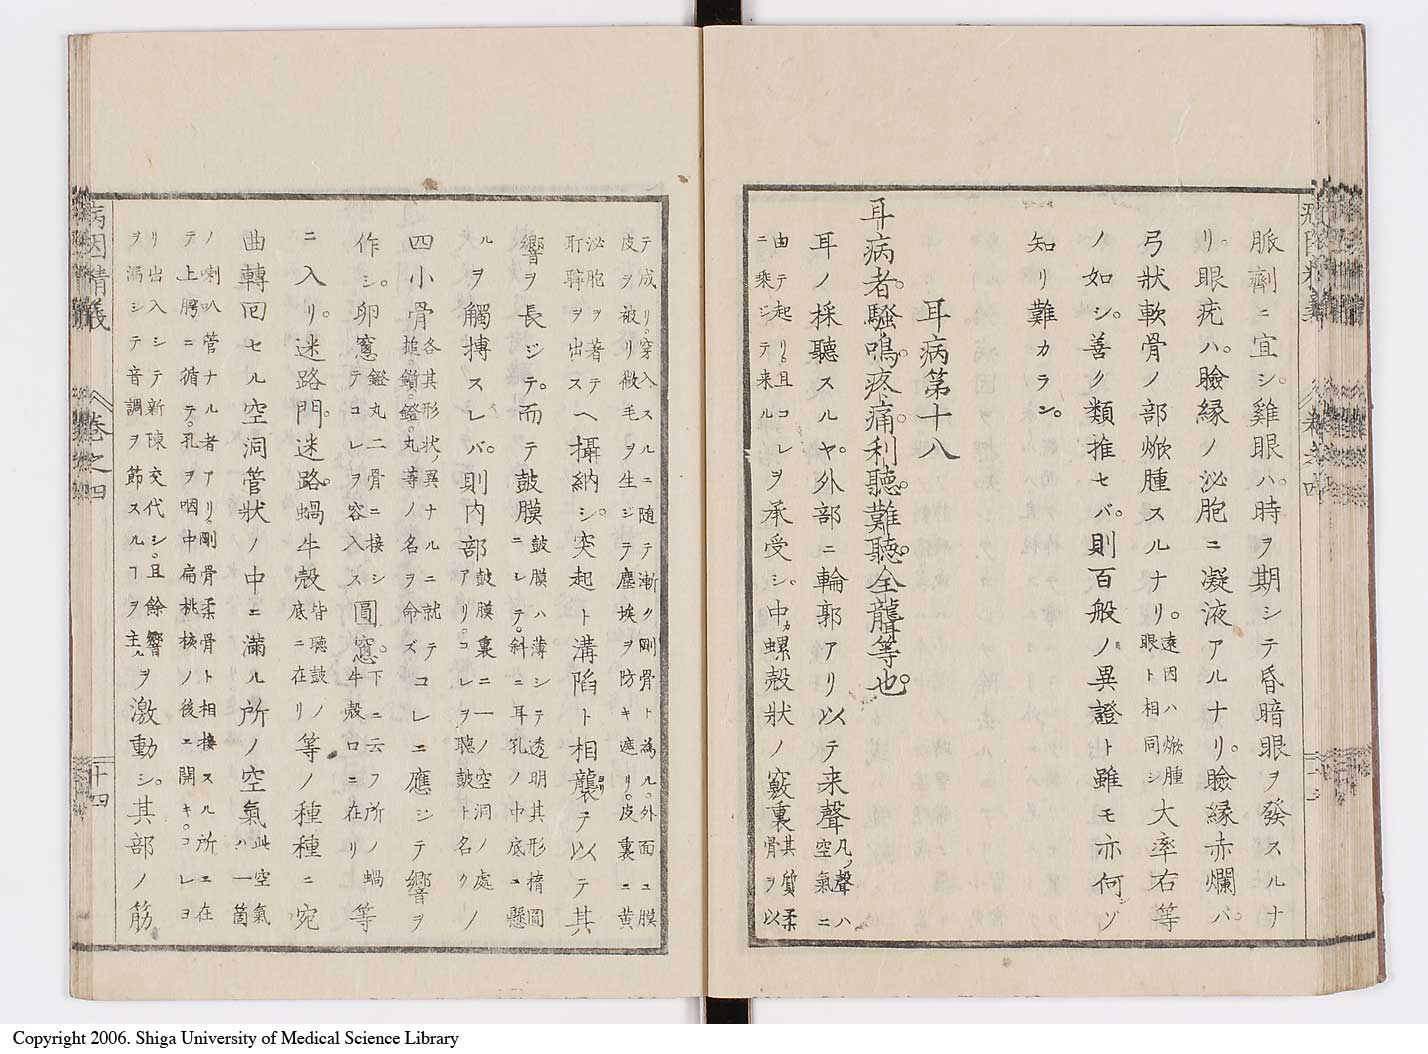 脈劑ニ宜シ。雞眼ハ。時ヲ期シテ昏暗眼ヲ發スルナ
リ。眼疣ハ。瞼縁ノ泌胞ニ凝液アルナリ。瞼縁赤爛バ。
弓狀軟骨ノ部焮腫スルナリ。遠因ハ焮腫眼ト相同シ大率右等
ノ如シ。善ク類推セバ。則百般ノ異證ト雖モ亦何ゾ
知リ難カラン。
耳病第十八
耳病者。騷鳴。疼痛。利聽。難聽。全聾等也。
耳ノ採聽スルヤ。外部ニ輪郭アリ以テ来聲凡ソ聲ハ空氣ニ
由テ起リ。且コレニ乘ジテ来ルヲ承受シ。中カ螺殻狀ノ竅裏其質柔骨ヲ以
テ成リ。穿入スルニ随テ漸ク剛骨ト為ル。外面ユ膜皮ヲ被リ微毛ヲ生ジテ塵埃ヲ防キ遮リ。皮裏ニ黄
泌胞ヲ著テ耵聹ヲ出スヘ攝納シ。突起ト溝陷ト相襲テ以テ其
響ヲ長ジテ。而テ鼓膜鼓膜ハ薄シテ透明其形楕圓ニシテ。斜ニ耳孔ノ中底ユ懸
ルヲ觸搏スレバ。則内部鼓膜裏ニ一ノ空洞ノ處アリ。コレヲ聽鼓ト名クノ
四小骨各其形狀異ナルニ就テ槌。鑕。鐙。丸等ノ名ヲ命ズコレニ應ジテ響ヲ
作シ。卵窓鐙丸二骨ニ接シテコレヲ容入ス圓窓。下ニ云フ所ノ蝸牛殻口ニ在リ等
ニ入リ。迷路門。迷路。蝸牛殻皆聽鼓ノ底ニ在リ等ノ種種ニ宛
曲轉回セル空洞管狀ノ中ニ滿ル所ノ空氣此空氣ハ一箇
ノ喇叭管ナル者アリ。剛骨柔骨ト相接スル所エ在テ上腭ニ循テ。孔ヲ咽中扁桃核ノ後エ開キ。コレヨ
リ出入シテ新陳交代シ。且餘響ヲ漏シテ音調ヲ節スルヿヲ主ルヲ激動シ。其部ノ筋
病因精義
卷之四
十四